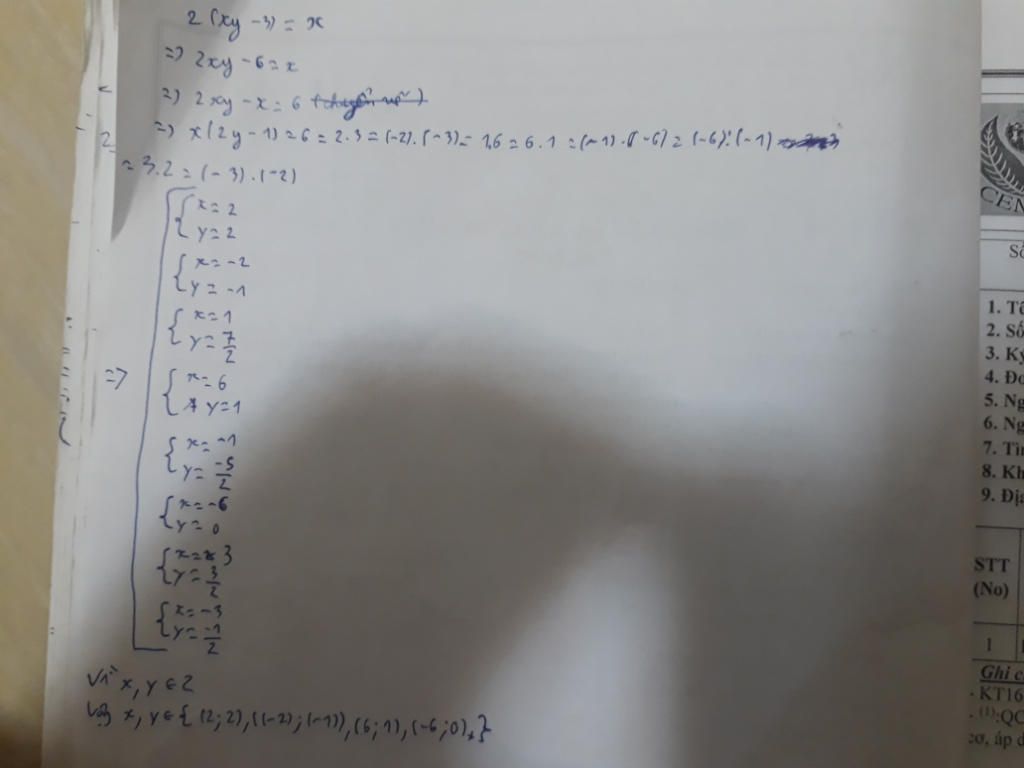 2 (xy - 3) = x
=> 2xy - 6 = x
=> 2xy - x = 6
=> x(2y - 1) = 6 = 2.3 = (-2).(-3) = 1.6 = 6.1 = (-1).(-6) = (-6).(-1)
= 3.2 = (-3).(-2)
x = 2
y = 2
x = -2
y = -1
x = 1
y = 7/2
=>
x = 6
y = 1
x = -1
y = -5/2
x = -6
y = 0
x = 3
y = 3/2
x = -3
y = -1/2
Vì x, y ∈ Z
Vậy x, y ∈ { (2; 2), ((-2); (-1)), (6; 1), (-6; 0).}
CEN
Số
1. Tê
2. Số
3. Ký
4. Đơ
5. Ng
6. Ng
7. Tìn
8. Kh
9. Địa
STT
(No)
1
Ghi c
- KT16
- (1):QC
cơ, áp d